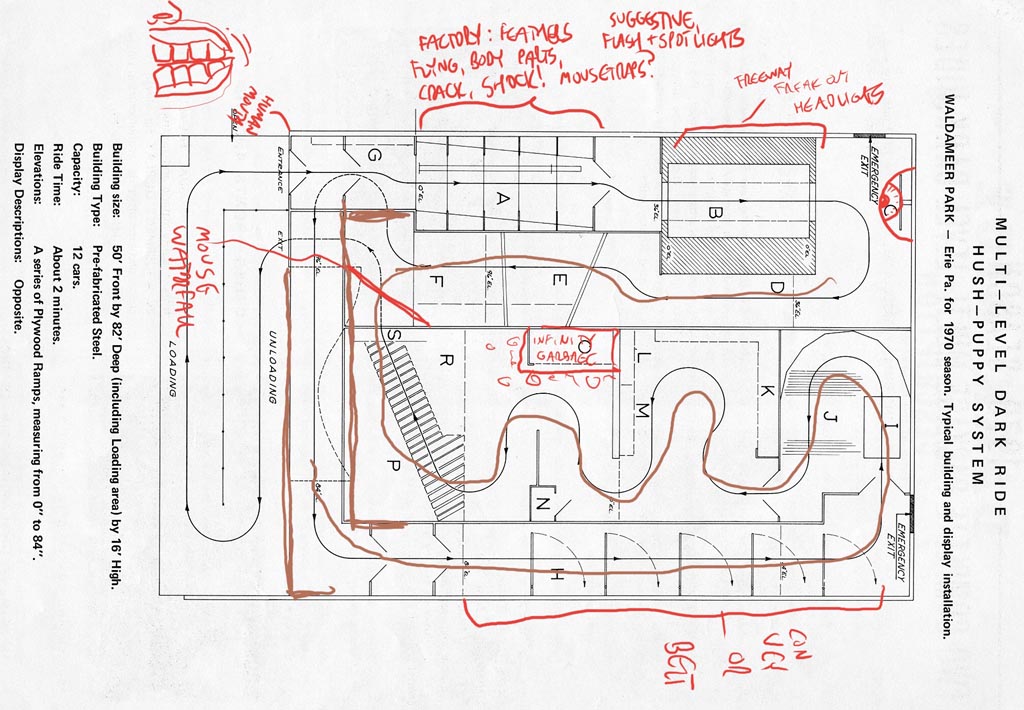 MULTI-LEVEL DARK RIDE
HUSH-PUPPY SYSTEM
WALDAMEER PARK — Erie Pa. for 1970 season. Typical building and display installation.
FACTORY: FEATHERS
FLYING, BODY PARTS,
CRACK, SHOCK! MOUSETRAPS?
SUGGESTIVE,
FLASH + SPOTLIGHTS
FREEWAY
FREAK OUT
HEADLIGHTS
HUMAN
MOUTH
EMERGENCY
EXIT
ENTRANCE
EXIT
G
A
B
C
D
E
F
0"EL
36"EL
96"EL
MOUSE
WATERFALL
LOADING
UNLOADING
INFINITY
GARBAGE
O
L
M
K
J
I
S
R
P
N
H
EMERGENCY
EXIT
84"EL
CON
VEY
OR
BELT
Building size: 50' Front by 82' Deep (including Loading area) by 16' High.
Building Type: Pre-fabricated Steel.
Capacity: 12 cars.
Ride Time: About 2 minutes.
Elevations: A series of Plywood Ramps, measuring from 0" to 84".
Display Descriptions: Opposite.